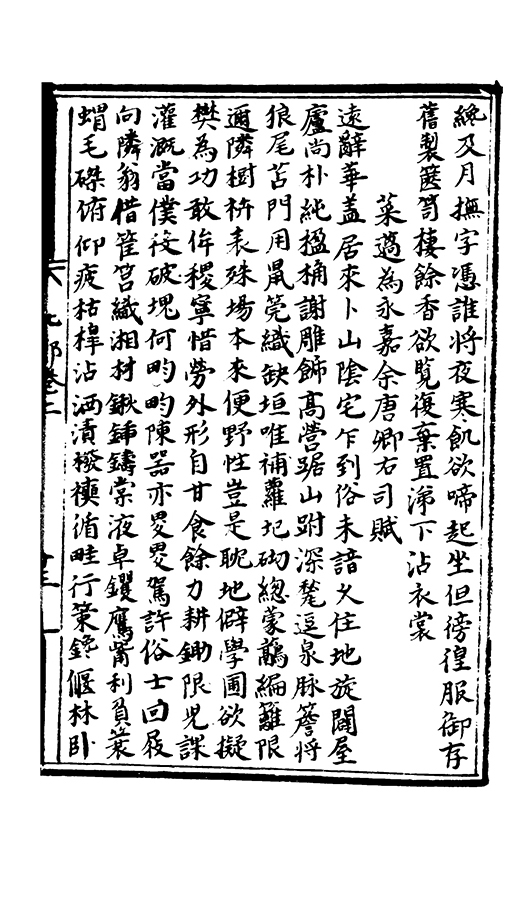 纔及月撫字憑誰將夜寒飢欲啼起坐但徬徨服御存
舊製篋笥棲餘香欲覽復棄置涕下沾衣裳
菜薖為永嘉余唐卿右司賦
遠辭華蓋居來卜山陰宅乍到俗未諳久住地旋闢屋
廬尚朴純楹桷謝雕飾高營踞山跗深甃逗泉脉簷將
狼尾苫門用鼠莞織缺垣唯補蘿圮砌總蒙虉編籬限
邇隣樹枿表殊場本來便野性豈是耽地僻學圃欲擬
樊為功敢侔稷寧惜勞外形自甘食餘力耕鋤限兒課
灌溉當僕役破塊何畇畇陳器亦畟畟駕許俗士回屐
向隣翁借篁筥織湘材鍬鍤鑄棠液卓钁鷹觜利負蓑
蝟毛磔俯仰疲枯槹沾洒漬襏襫循畦行策鑱偃林卧